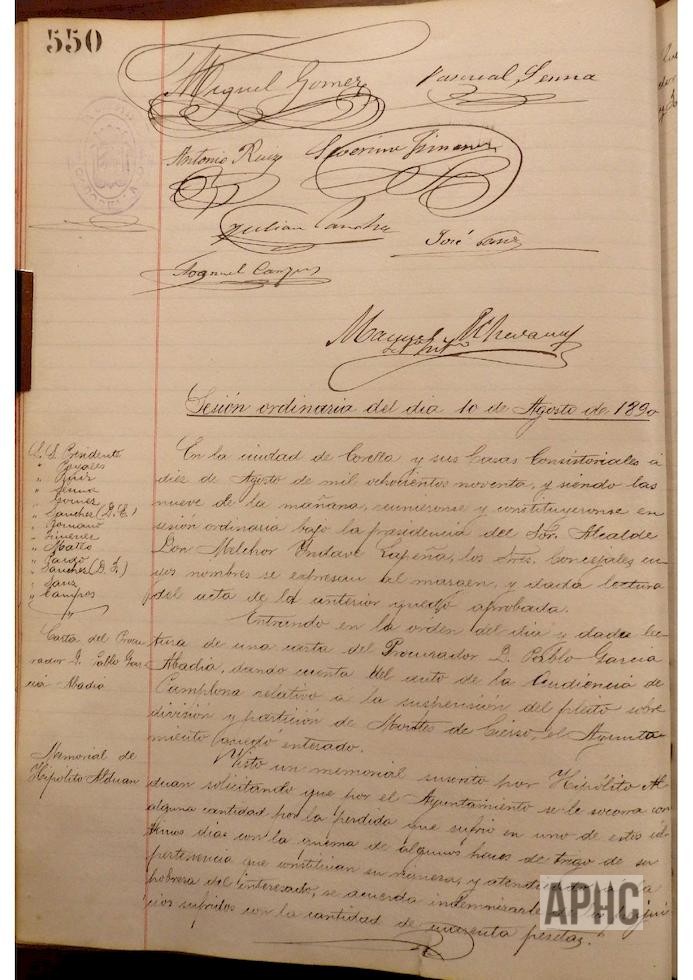 550
Miguel Gomez Pascual Senna
Antonio Ruiz Severino Jimenez
Julian Sanchez José Sanz
Manuel Campos
Sesión ordinaria del dia 10 de Agosto de 1890
S. S. Presidente
" Ruiz
" Senna
" Gomez
" Sanchez (D. E.)
" Romano
" Jimenez
" Mateo
" Pardo
" Sanchez (D. J.)
" Sanz
" Campos
En la ciudad de Corella y sus Casas Consistoriales á
diez de Agosto de mil ochocientos noventa, y siendo las
nueve de la mañana, reunieronse y constituyeronse en
sesión ordinaria bajo la presidencia del Sor. Alcalde
Don Melchor Lapeña, los Sres. Concejales cu-
yos nombres se expresan al margen, y dada lectura
del acta de la anterior quedó aprobada.
Carta del Procu-
rador D. Pablo Gar-
cia Abadia
Entrando en la orden del dia y dada lec-
tura de una carta del Procurador D. Pablo Garcia
Abadia, dando cuenta del auto de la Audiencia de
Pamplona relativo á la suspensión del pleito sobre
división y partición de Montes de Cierzo, el Ayunta-
miento quedó enterado.
Memorial de
Hipólito Alduan
Visto un memorial suscrito por Hipólito Al-
duan solicitando que por el Ayuntamiento se le socorra con
alguna cantidad por la perdida que sufrió en uno de estos úl-
timos dias con la quema de algunos haces de trigo de su
pertenencia que constituian su riqueza, y atendida la
pobreza del interesado, se acuerda indemnizarle los perjui-
cios sufridos con la cantidad de cuarenta pesetas.
APHC